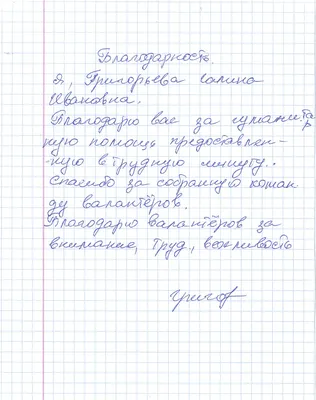 Благодарность.
Я, Григорьева Галина
Ивановна.
Благодарю вас за гуманитар
ную помощь предоставлен-
ную в трудную минуту.
Спасибо за собранную коман
ду валантёров.
Благодарю валантёров за
внимание, труд, вежливость
Григор